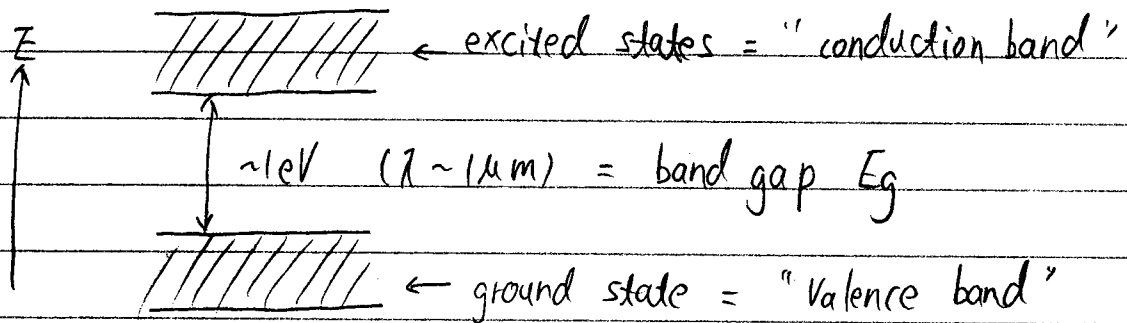 E
← excited states = "conduction band"
~1eV (λ ~ 1μm) = band gap Eg
← ground state = "Valence band"